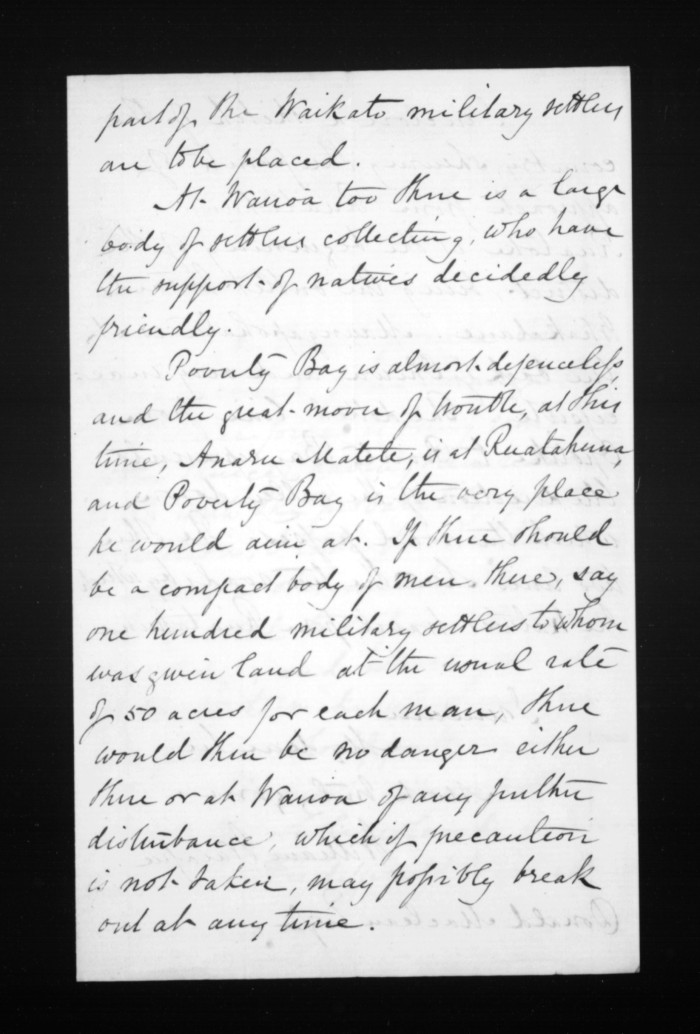 part of the Waikato military settlers
are to be placed.
At Wairoa too there is a large
body of settlers collecting, who have
the support of natives decidedly
friendly.
Poverty Bay is almost defenceless
and the great mover of trouble, at this
time, Anaru Matete, is at Ruatahuna,
and Poverty Bay is the very place
he would aim at. If there should
be a compact body of men there, say
one hundred military settlers to whom
was given land at the usual rate
of 50 acres for each man, there
would then be no danger either
there or at Wairoa of any further
disturbance, which if precaution
is not taken, may possibly break
out at any time.